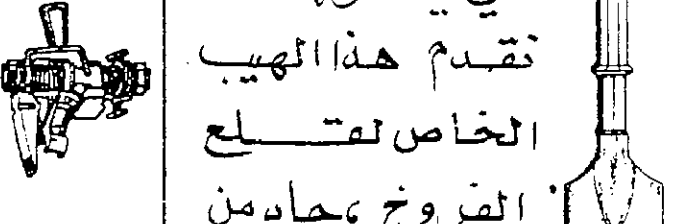 نقدم هذا الهيب
الخاص لقلع
الفروخ، حاد من